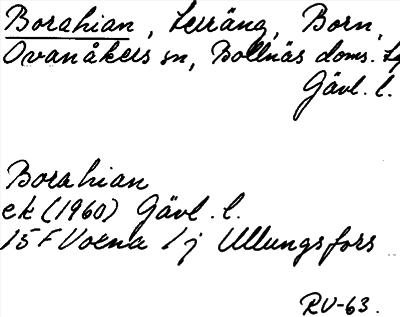 Borahian, Terräng, Born,
Ovanåkers sn, Bollnäs doms.
Gävl. l.
Borahian
ek (1960) Gävl. l.
15 F Voxna 1 j Ullungsfors
RV-63.